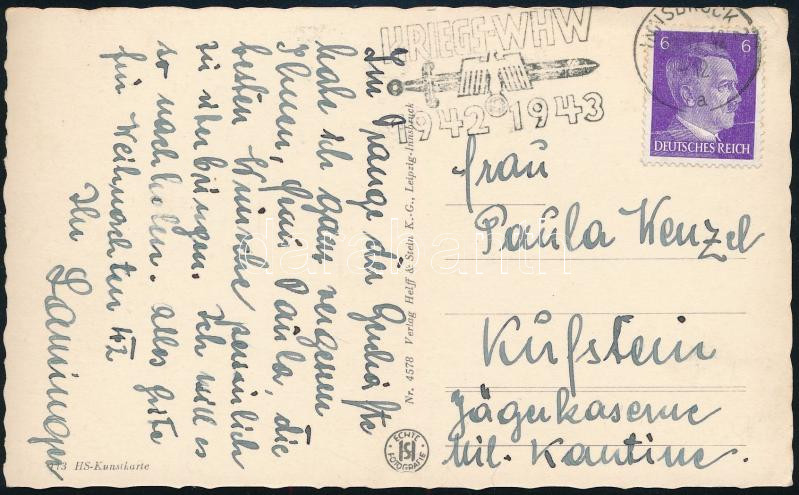 Im Drange der Geschäfte
habe ich ganz vergessen
Ihnen, Frau Paula, die
besten Wünsche persönlich
zu überbringen. Ich will es
so nachholen. Alles gute
für Weihnachten 42
Ihr
KRIEGS-WHW
1942 1943
INNSBRUCK
12
a
6 6
DEUTSCHES REICH
Frau
Paula Wenzel
Kufstein
Jägerkaserne
Mil. Kantine.
Nr. 4578 Verlag Helff & Stein K.-G., Leipzig-Innsbruck
ECHTE
HS
FOTOGRAFIE
HS-Kunstkarte
darabanth